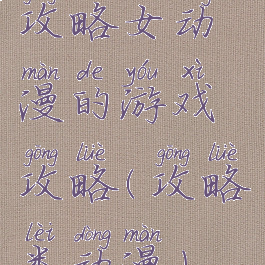 攻略女动
màn de yóu xì
漫的游戏
gōng lüè gōng lüè
攻略(攻略
lèi dòng màn
类动漫)